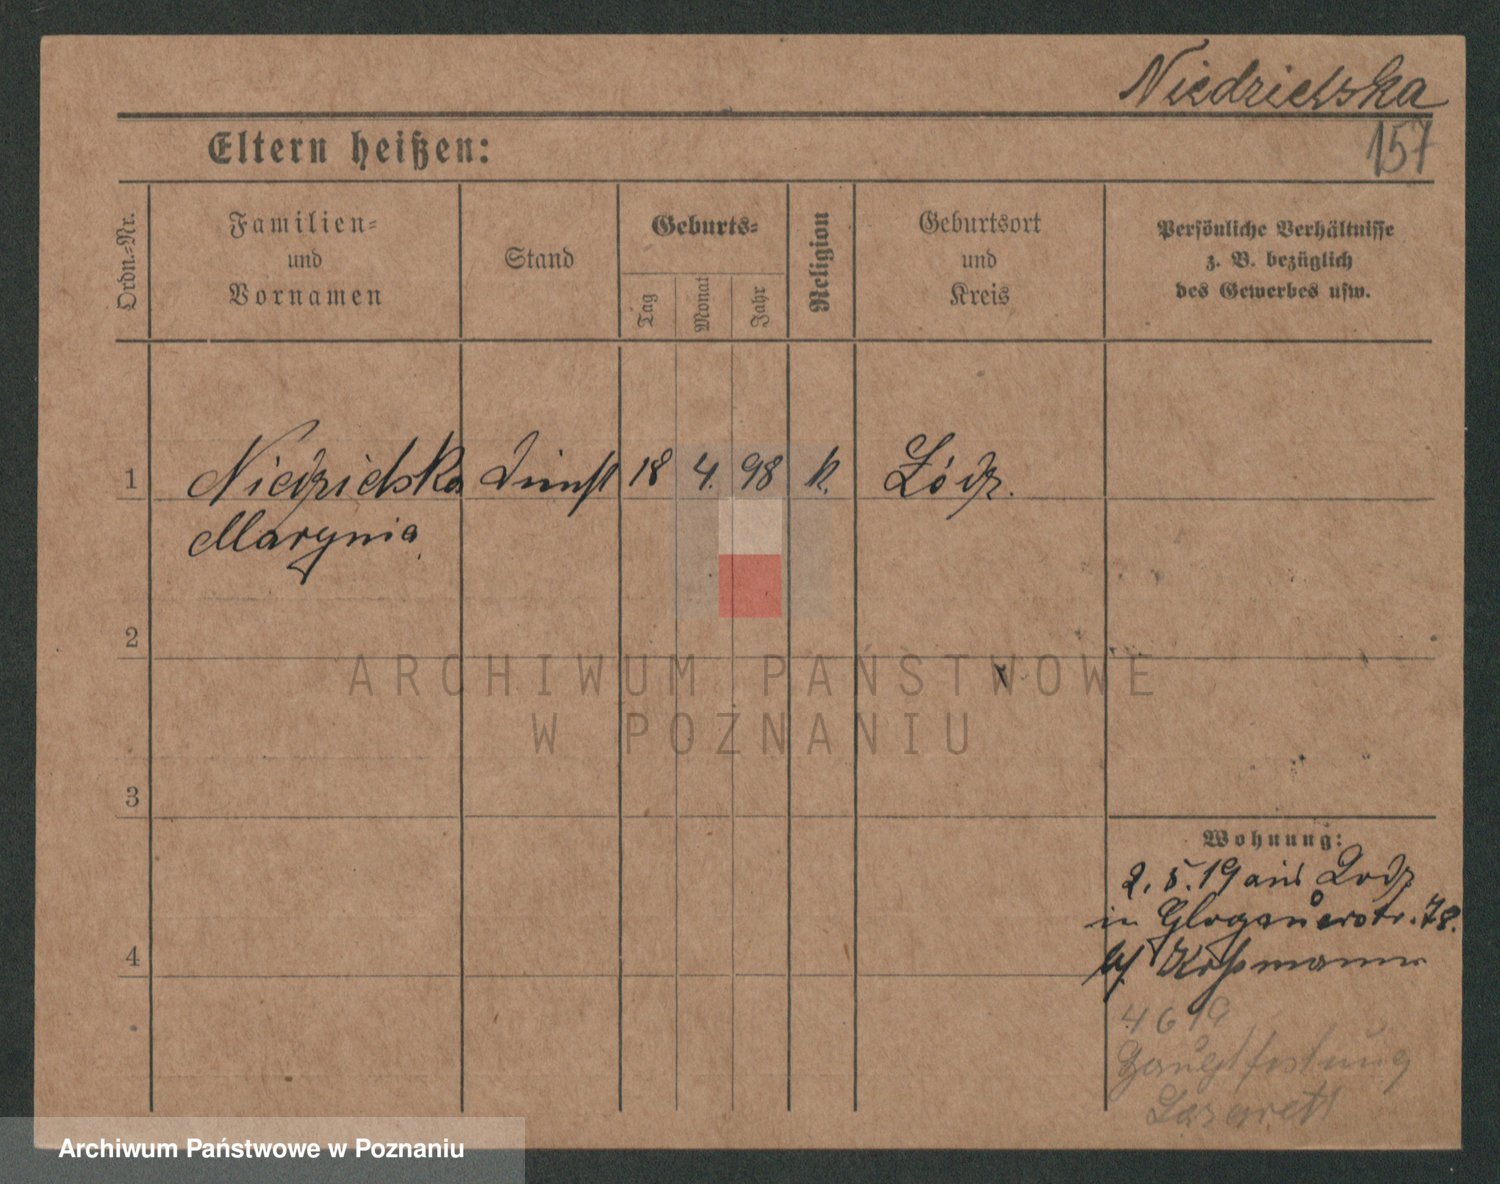 Niedzielska
157
Eltern heißen:
Ordn.-Nr.
Familien- und Vornamen
Stand
Geburts-
Tag
Monat
Jahr
Religion
Geburtsort und Kreis
Persönliche Verhältnisse
z. B. bezüglich
des Gewerbes usw.
1 Niedzielska Dienst 18 4. 98 k. Łódz.
Marynia
2
3
4
Wohnung:
2. 5. 19 aus Lodz
in Glogauerstr. 78.
b/ Koßmann
4 6 19
Hauptfestung
Lazarett
ARCHIWUM PAŃSTWOWE
W POZNANIU
Archiwum Państwowe w Poznaniu